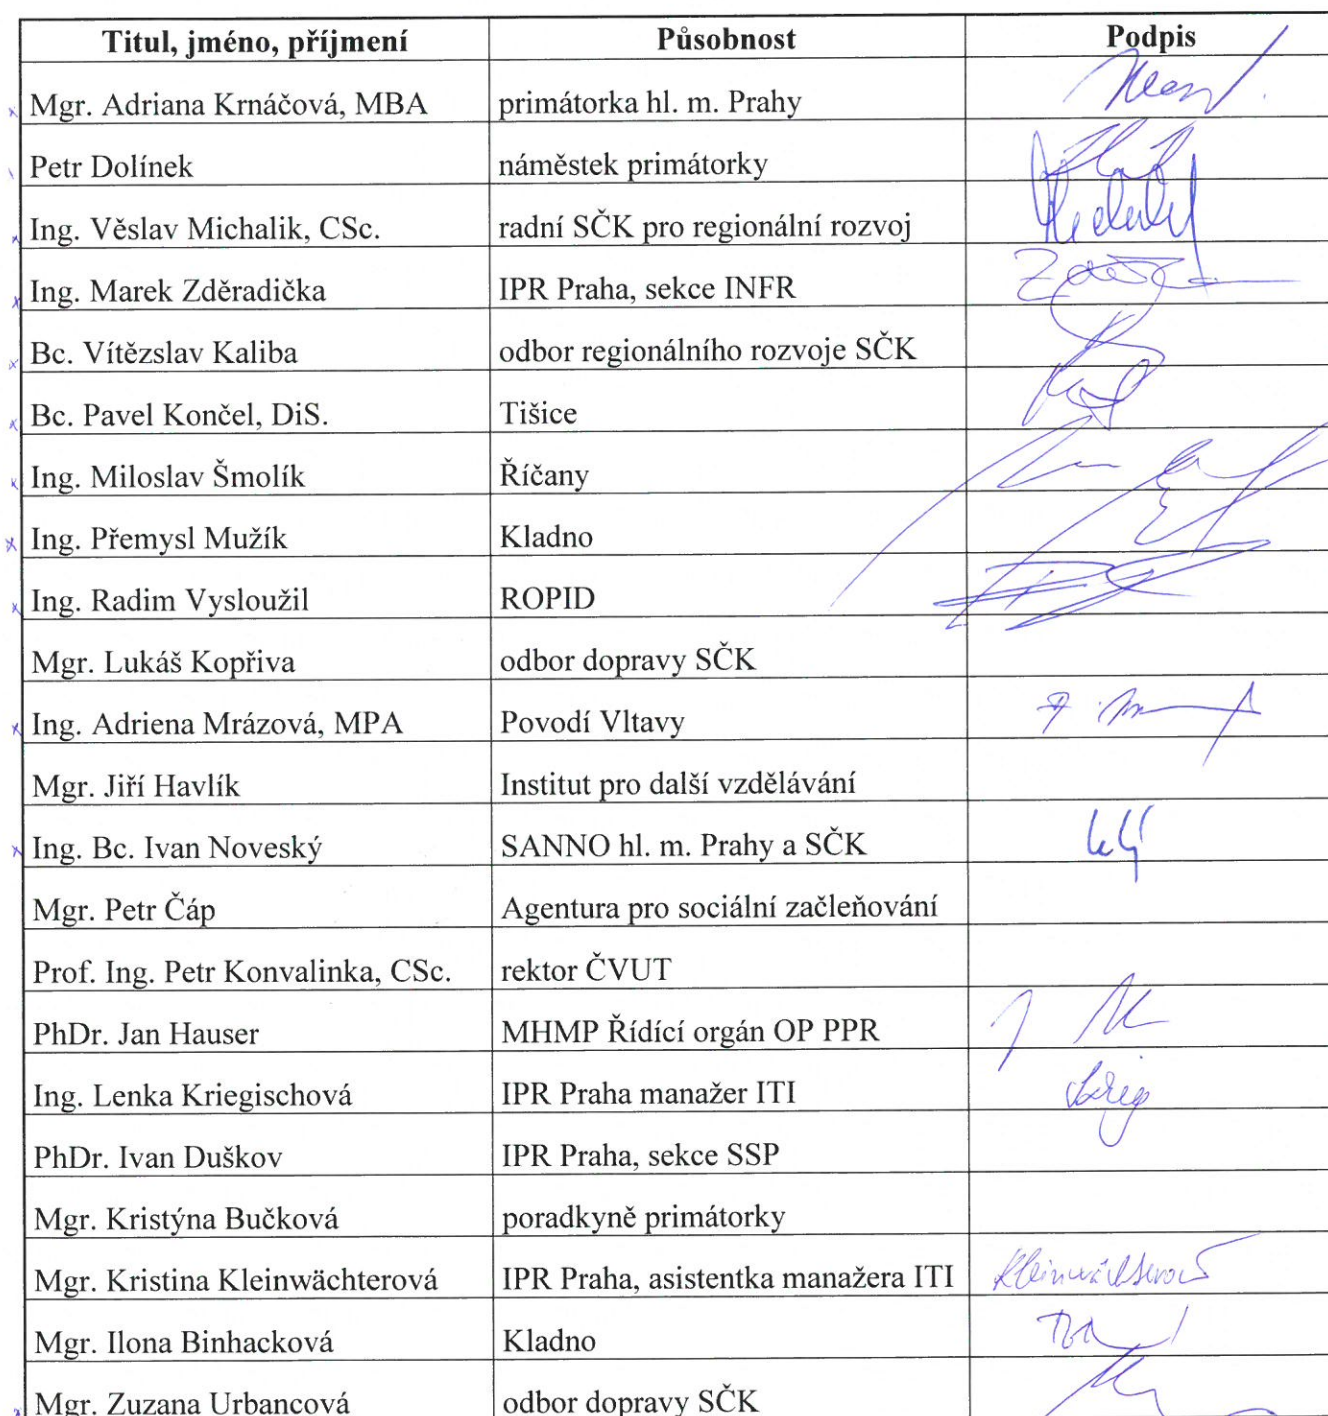 Titul, jméno, příjmení Působnost Podpis
Mgr. Adriana Krnáčová, MBA primátorka hl. m. Prahy
Petr Dolínek náměstek primátorky
Ing. Věslav Michalik, CSc. radní SČK pro regionální rozvoj
Ing. Marek Zděradička IPR Praha, sekce INFR
Bc. Vítězslav Kaliba odbor regionálního rozvoje SČK
Bc. Pavel Končel, DiS. Tišice
Ing. Miloslav Šmolík Říčany
Ing. Přemysl Mužík Kladno
Ing. Radim Vysloužil ROPID
Mgr. Lukáš Kopřiva odbor dopravy SČK
Ing. Adriena Mrázová, MPA Povodí Vltavy
Mgr. Jiří Havlík Institut pro další vzdělávání
Ing. Bc. Ivan Noveský SANNO hl. m. Prahy a SČK
Mgr. Petr Čáp Agentura pro sociální začleňování
Prof. Ing. Petr Konvalinka, CSc. rektor ČVUT
PhDr. Jan Hauser MHMP Řídící orgán OP PPR
Ing. Lenka Kriegischová IPR Praha manažer ITI
PhDr. Ivan Duškov IPR Praha, sekce SSP
Mgr. Kristýna Bučková poradkyně primátorky
Mgr. Kristina Kleinwächterová IPR Praha, asistentka manažera ITI Kleinwächterová
Mgr. Ilona Binhacková Kladno
Mgr. Zuzana Urbancová odbor dopravy SČK